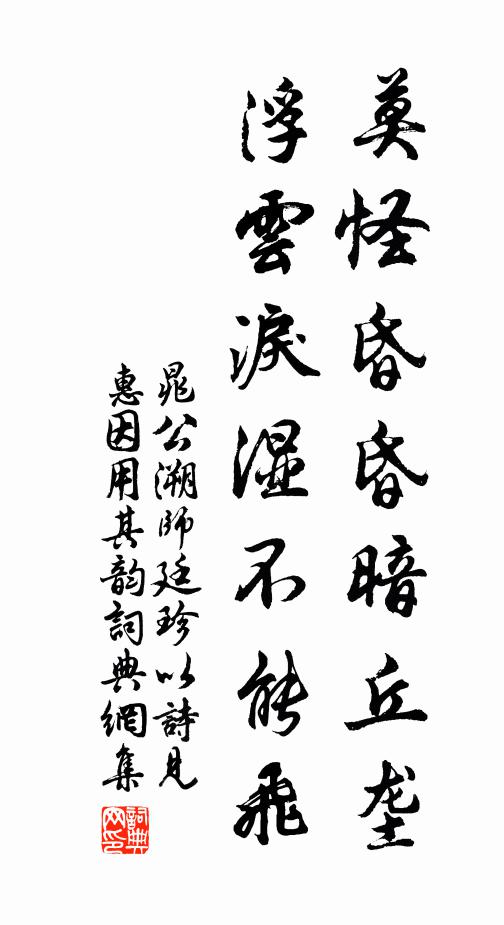 莫怪昏昏暗丘垄
浮雲淚湿不能飛
晁公溯師廷珍以詩見
惠因用其韵詞典網集
詞典网印